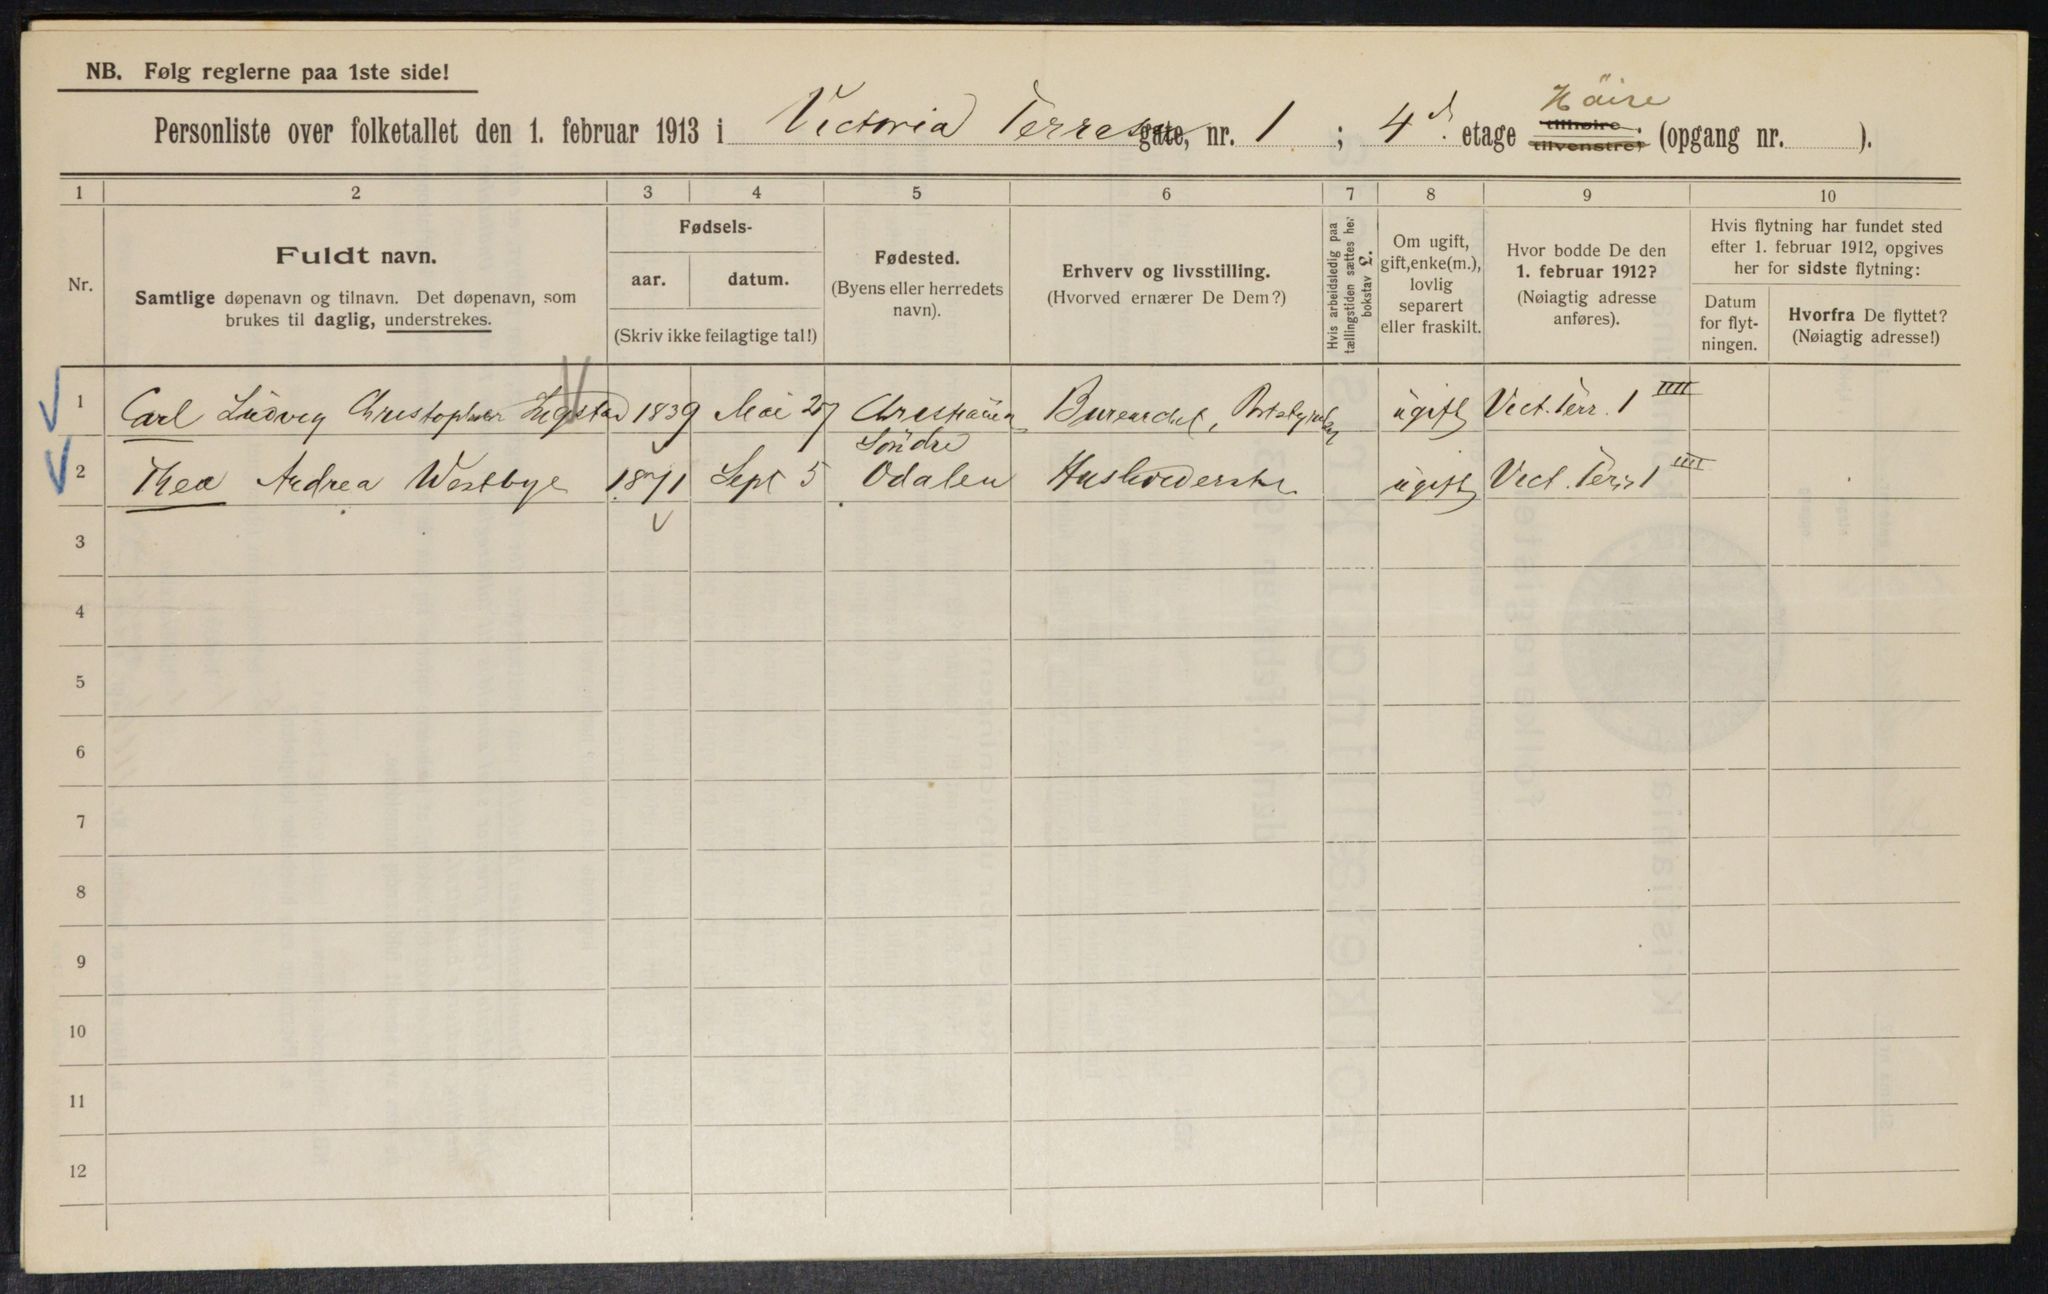 NB. Følg reglerne paa 1ste side!
Høire
Personliste over folketallet den 1. februar 1913 i Victoria Terrasse gate, nr. 1 ; 4d. etage tilhøire, tilvenstre, (opgang nr. ).
1 2 3 4 5 6 7 8 9 10
Nr.
Fuldt navn.
Samtlige døpenavn og tilnavn. Det døpenavn, som
brukes til daglig, understrekes.
Fødsels-
aar. datum.
(Skriv ikke feilagtige tal!)
Fødested.
(Byens eller herredets
navn).
Erhverv og livsstilling.
(Hvorved ernærer De Dem?)
Hvis arbeidsledig paa
tællingstiden sættes her
bokstav L.
Om ugift,
gift, enke(m.),
lovlig
separert
eller fraskilt.
Hvor bodde De den
1. februar 1912?
(Nøiagtig adresse
anføres).
Hvis flytning har fundet sted
efter 1. februar 1912, opgives
her for sidste flytning:
Datum
for flyt-
ningen.
Hvorfra De flyttet?
(Nøiagtig adresse!)
1 Carl Ludvig Christopher 1839 Mai 27 Christiania ugift Vict. Terr. 1 IIII
2 Thea Andrea Westbye 1871 Sept 5 Söndre Odalen Husholderske ugift Vict. Terr. 1 IIII
3
4
5
6
7
8
9
10
11
12